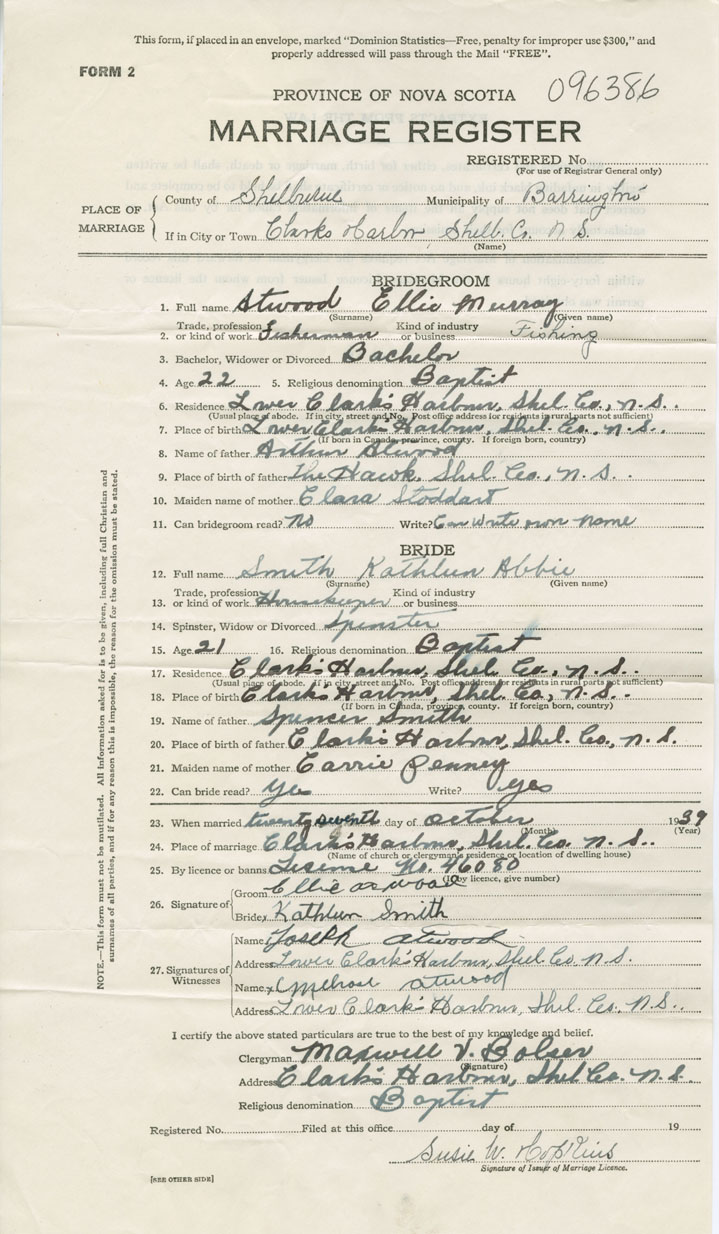 This form, if placed in an envelope, marked "Dominion Statistics—Free, penalty for improper use $300," and
properly addressed will pass through the Mail "FREE".
FORM 2
PROVINCE OF NOVA SCOTIA 096386
MARRIAGE REGISTER
REGISTERED No
(For use of Registrar General only)
PLACE OF MARRIAGE
County of Shelburne Municipality of Barrington
If in City or Town Clarks Harbor Shelb. Co. N. S.
(Name)
BRIDEGROOM
1. Full name Atwood Ellie Murray
(Surname) (Given name)
Trade, profession Kind of industry
2. or kind of work Fisherman or business Fishing
3. Bachelor, Widower or Divorced Bachelor
4. Age 22 5. Religious denomination Baptist
6. Residence Lower Clark's Harbour, Shel. Co., N. S.
(Usual place of abode. If in city, street and No. Post office address for residents in rural parts not sufficient)
7. Place of birth Lower Clark's Harbour, Shel. Co., N. S.
(If born in Canada, province, county. If foreign born, country)
8. Name of father Arthur Atwood
9. Place of birth of father The Hawk, Shel. Co., N. S.
10. Maiden name of mother Clara Stoddart
11. Can bridegroom read? No Write? Can write own name
BRIDE
12. Full name Smith Kathleen Abbie
(Surname) (Given name)
Trade, profession Kind of industry
13. or kind of work Housekeeper or business
14. Spinster, Widow or Divorced Spinster
15. Age 21 16. Religious denomination Baptist
17. Residence Clark's Harbour, Shel. Co., N. S.
(Usual place of abode. If in city, street and No. Post office address for residents in rural parts not sufficient)
18. Place of birth Clark's Harbour, Shel. Co., N. S.
(If born in Canada, province, county. If foreign born, country)
19. Name of father Spencer Smith
20. Place of birth of father Clark's Harbour, Shel. Co., N. S.
21. Maiden name of mother Carrie Penney
22. Can bride read? Yes Write? Yes
23. When married twenty seventh day of October 1939
(Month) (Year)
24. Place of marriage Clark's Harbour, Shel. Co. N. S.
(Name of church or clergyman's residence or location of dwelling house)
25. By licence or banns License No. 46080
(If by licence, give number)
26. Signature of
Groom Ellie Atwood
Bride x Kathleen Smith
27. Signatures of Witnesses
Name x Joseph Atwood
Address Lower Clark's Harbour, Shel. Co. N. S.
Name x Melrose Atwood
Address Lower Clark's Harbour, Shel. Co., N. S.
I certify the above stated particulars are true to the best of my knowledge and belief.
Clergyman Maxwell V. Bolser
(Signature)
Address Clark's Harbour, Shel Co. N. S.
Religious denomination Baptist
Registered No. Filed at this office day of 19
Susie W. Hopkins
Signature of Issuer of Marriage Licence.
[SEE OTHER SIDE]
NOTE.—This form must not be mutilated. All information asked for is to be given, including full Christian and
surnames of all parties, and if for any reason this is impossible, the reason for the omission must be stated.